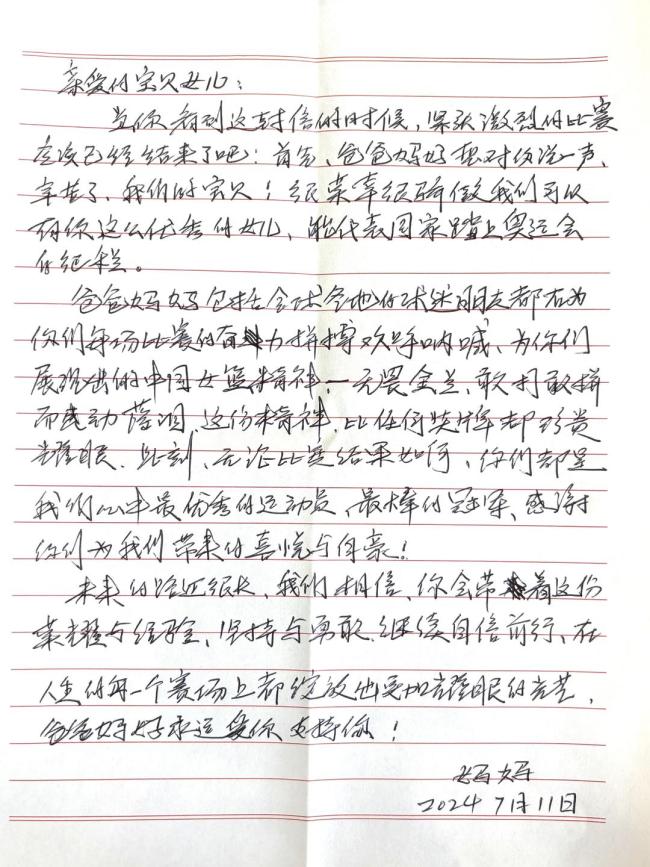 亲爱的宝贝女儿：
当你看到这封信的时候，紧张激烈的比赛
应该已经结束了吧！首先、爸爸妈妈想对你说一声、
辛苦了，我们的宝贝！很荣幸很骄傲我们可以
有你这么优秀的女儿、能代表国家踏上奥运会
的征程。
爸爸妈妈包括全球各地的球迷朋友都在为
你们每场比赛的奋力拼搏欢呼呐喊、为你们
展现出的中国女篮精神一无畏金兰、敢打敢拼
而感动落泪、这份精神、比任何奖牌都珍贵
耀眼、此刻、无论比赛结果如何、你们都是
我们心中最优秀的运动员、最棒的冠军、感谢
你们为我们带来的喜悦与自豪！
未来的路还很长、我们相信、你会带着这份
荣耀与经验、坚持与勇敢、继续自信前行、在
人生的每一个赛场上都绽放出更加耀眼的光芒，
爸爸妈妈永远爱你支持你！
妈妈
2024 7月11日